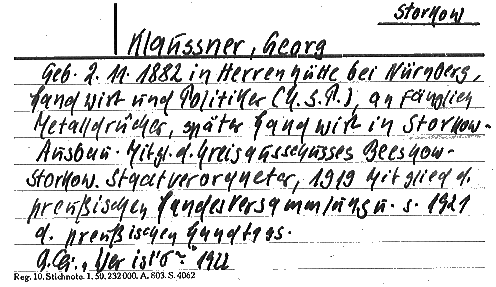 Storkow
Klaussner, Georg
Geb. 2. 11. 1882 in Herrenhütte bei Nürnberg,
Landwirt und Politiker (U. S. P.), anfänglich
Metalldrücker, später Landwirt in Storkow-
Ausbau. Mitgl. d. Kreisausschusses Beeskow-
Storkow. Stadtverordneter, 1919 Mitglied d.
preußischen Landesversammlung u. s. 1921
d. preußischen Landtags.
"Wer ist's" 1922
Reg. 10. Stichnote. 1. 50. 232000. A. 803. S. 4062